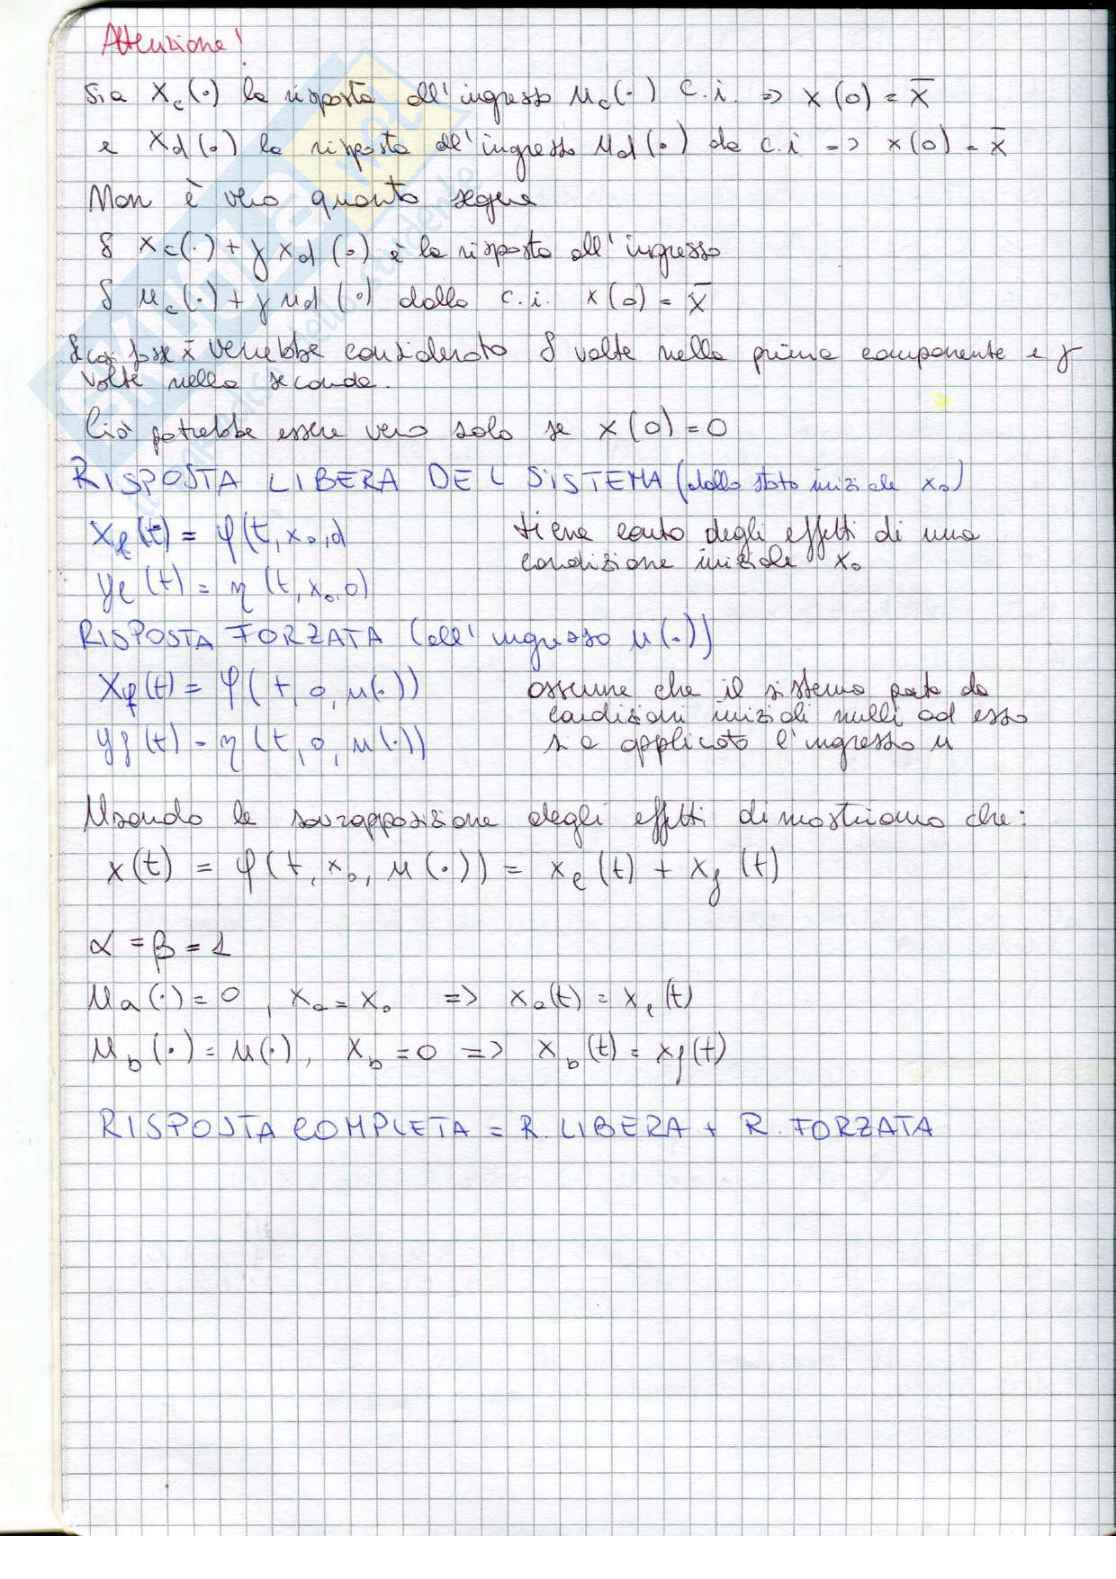 Attenzione!
Sia x_c(·) la risposta all'ingresso u_c(·) c.i. => x(0) = x̄
e x_d(·) la risposta all'ingresso u_d(·) da c.i -> x(0) = x̄
Non è vero quanto segue
δ x_c(·) + γ x_d(·) è la risposta all'ingresso
δ u_c(·) + γ u_d(·) dalla c.i. x(0) = x̄
x̄ verrebbe considerato δ volte nella prima componente e γ
volte nella seconda.
Ciò potrebbe essere vero solo se x(0) = 0
RISPOSTA LIBERA DEL SISTEMA (dallo stato iniziale x₀)
x_ℓ(t) = φ(t, x₀, 0) tiene conto degli effetti di una
condizione iniziale x₀
y_ℓ(t) = η(t, x₀, 0)
RISPOSTA FORZATA (all'ingresso u(·))
x_f(t) = φ(t, 0, u(·)) assume che il sistema parta da
condizioni iniziali nulli ad esso
y_f(t) = η(t, 0, u(·)) sia applicato l'ingresso u
Usando la sovrapposizione degli effetti dimostriamo che:
x(t) = φ(t, x₀, u(·)) = x_ℓ(t) + x_f(t)
α = β = 1
u_a(·) = 0, x_a = x₀ => x_a(t) = x_ℓ(t)
u_b(·) = u(·), x_b = 0 => x_b(t) = x_f(t)
RISPOSTA COMPLETA = R. LIBERA + R. FORZATA